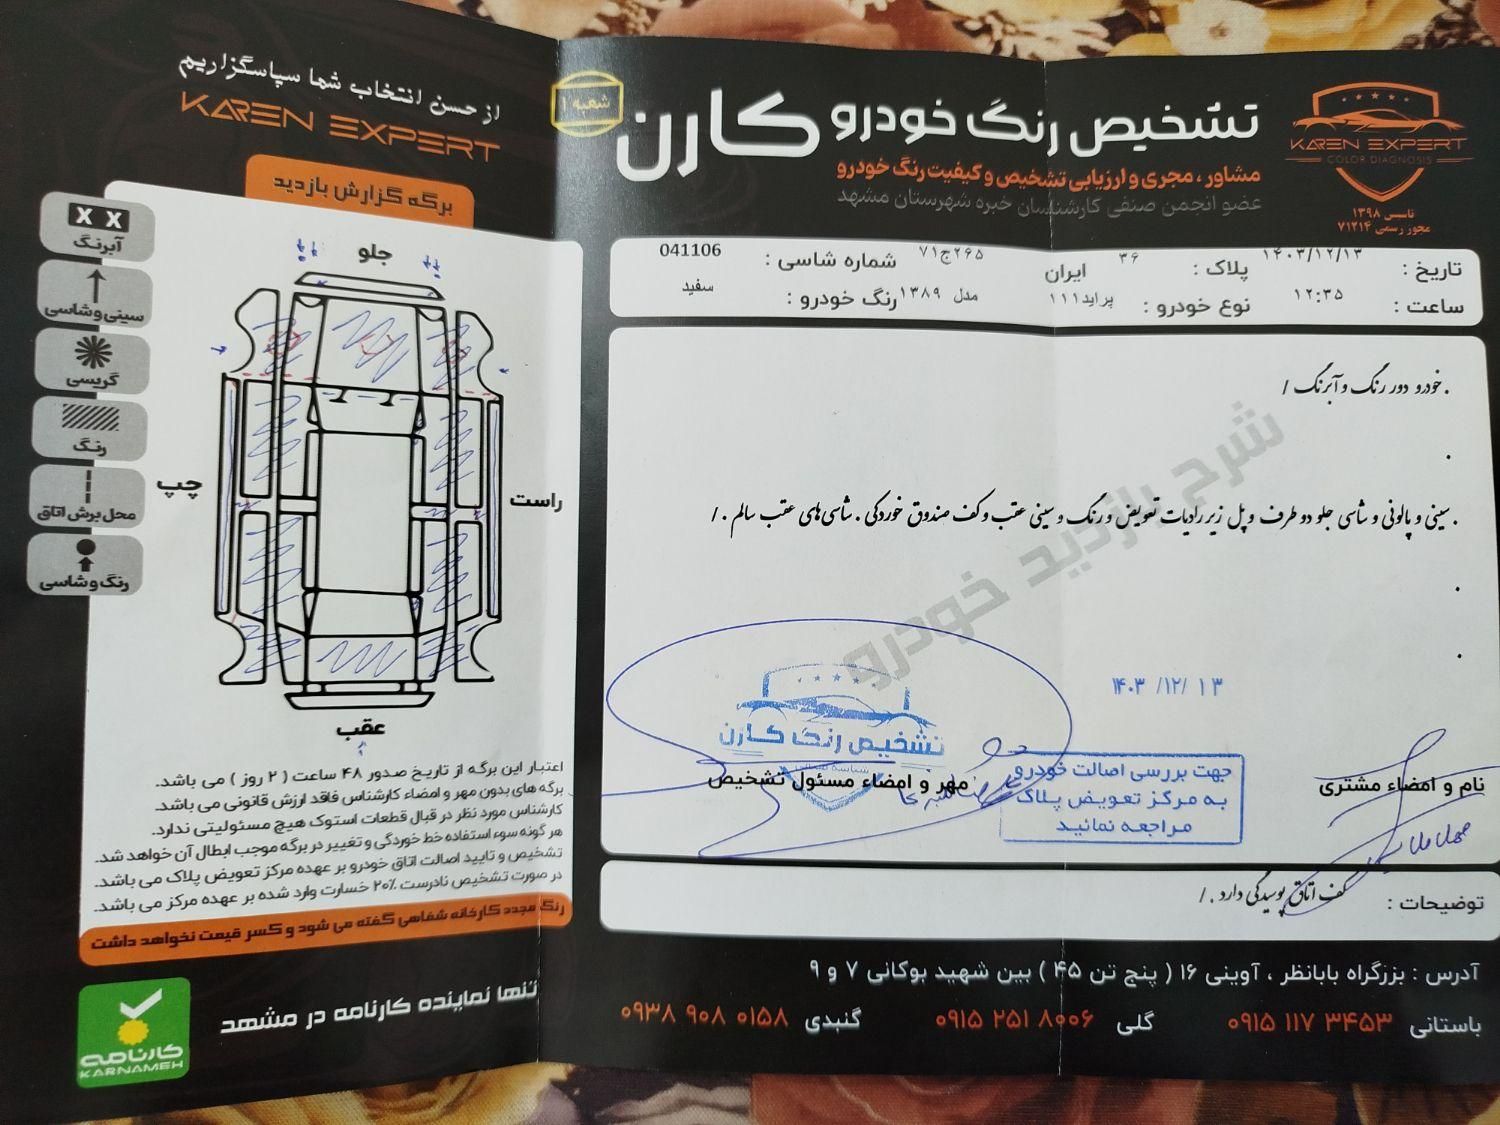 از حسن انتخاب شما سپاسگزاریم
KAREN EXPERT
برگه گزارش بازدید
X X
آبرنگ
سینی و شاسی
گریسی
رنگ
محل برش اتاق
رنگ و شاسی
جلو
چپ
راست
عقب
اعتبار این برگه از تاریخ صدور ۴۸ ساعت ( ۲ روز ) می باشد.
برگه های بدون مهر و امضاء کارشناس فاقد ارزش قانونی می باشد.
کارشناس مورد نظر در قبال قطعات استوک هیچ مسئولیتی ندارد.
هر گونه سوء استفاده خط خوردگی و تغییر در برگه موجب ابطال آن خواهد شد.
تشخیص و تایید اصالت اتاق خودرو بر عهده مرکز تعویض پلاک می باشد.
در صورت تشخیص نادرست ۲۰٪ خسارت وارد شده بر عهده مرکز می باشد.
رنگ مجدد کارخانه شفاهی گفته می شود و کسر قیمت نخواهد داشت
کارنامه
KARNAMEH
تنها نماینده کارنامه در مشهد
شعبه ۱
تشخیص رنگ خودرو کارن
مشاور ، مجری و ارزیابی تشخیص و کیفیت رنگ خودرو
عضو انجمن صنفی کارشناسان خبره شهرستان مشهد
KAREN EXPERT
COLOR DIAGNOSIS
تاسیس ۱۳۹۸
مجوز رسمی ۷۱۲۱۴
تاریخ : ۱۴۰۳/۱۲/۱۳ پلاک : ۳۶ ایران ۲۶۵ج۷۱ شماره شاسی : 041106
ساعت : ۱۲:۳۵ نوع خودرو : پراید۱۱۱ مدل ۱۳۸۹ رنگ خودرو : سفید
. خودرو دور رنگ و آبرنگ /
.
. سینی و پالونی و شاسی جلو دو طرف و پل زیر رادیات تعویض و رنگ و سینی عقب و کف صندوق خوردگی . شاسی های عقب سالم . /
.
.
شرح بازدید خودرو
۱۴۰۳ /۱۲/ ۱۳
تشخیص رنگ کارن
مهر و امضاء مسئول تشخیص
جهت بررسی اصالت خودرو
به مرکز تعویض پلاک
مراجعه نمائید
نام و امضاء مشتری
توضیحات : کف اتاق پوسیدگی دارد . /
آدرس : بزرگراه بابانظر ، آوینی ۱۶ ( پنج تن ۴۵ ) بین شهید بوکانی ۷ و ۹
باستانی ۰۹۱۵ ۱۱۷ ۳۴۵۳ گلی ۰۹۱۵ ۲۵۱ ۸۰۰۶ گنبدی ۰۹۳۸ ۹۰۸ ۰۱۵۸